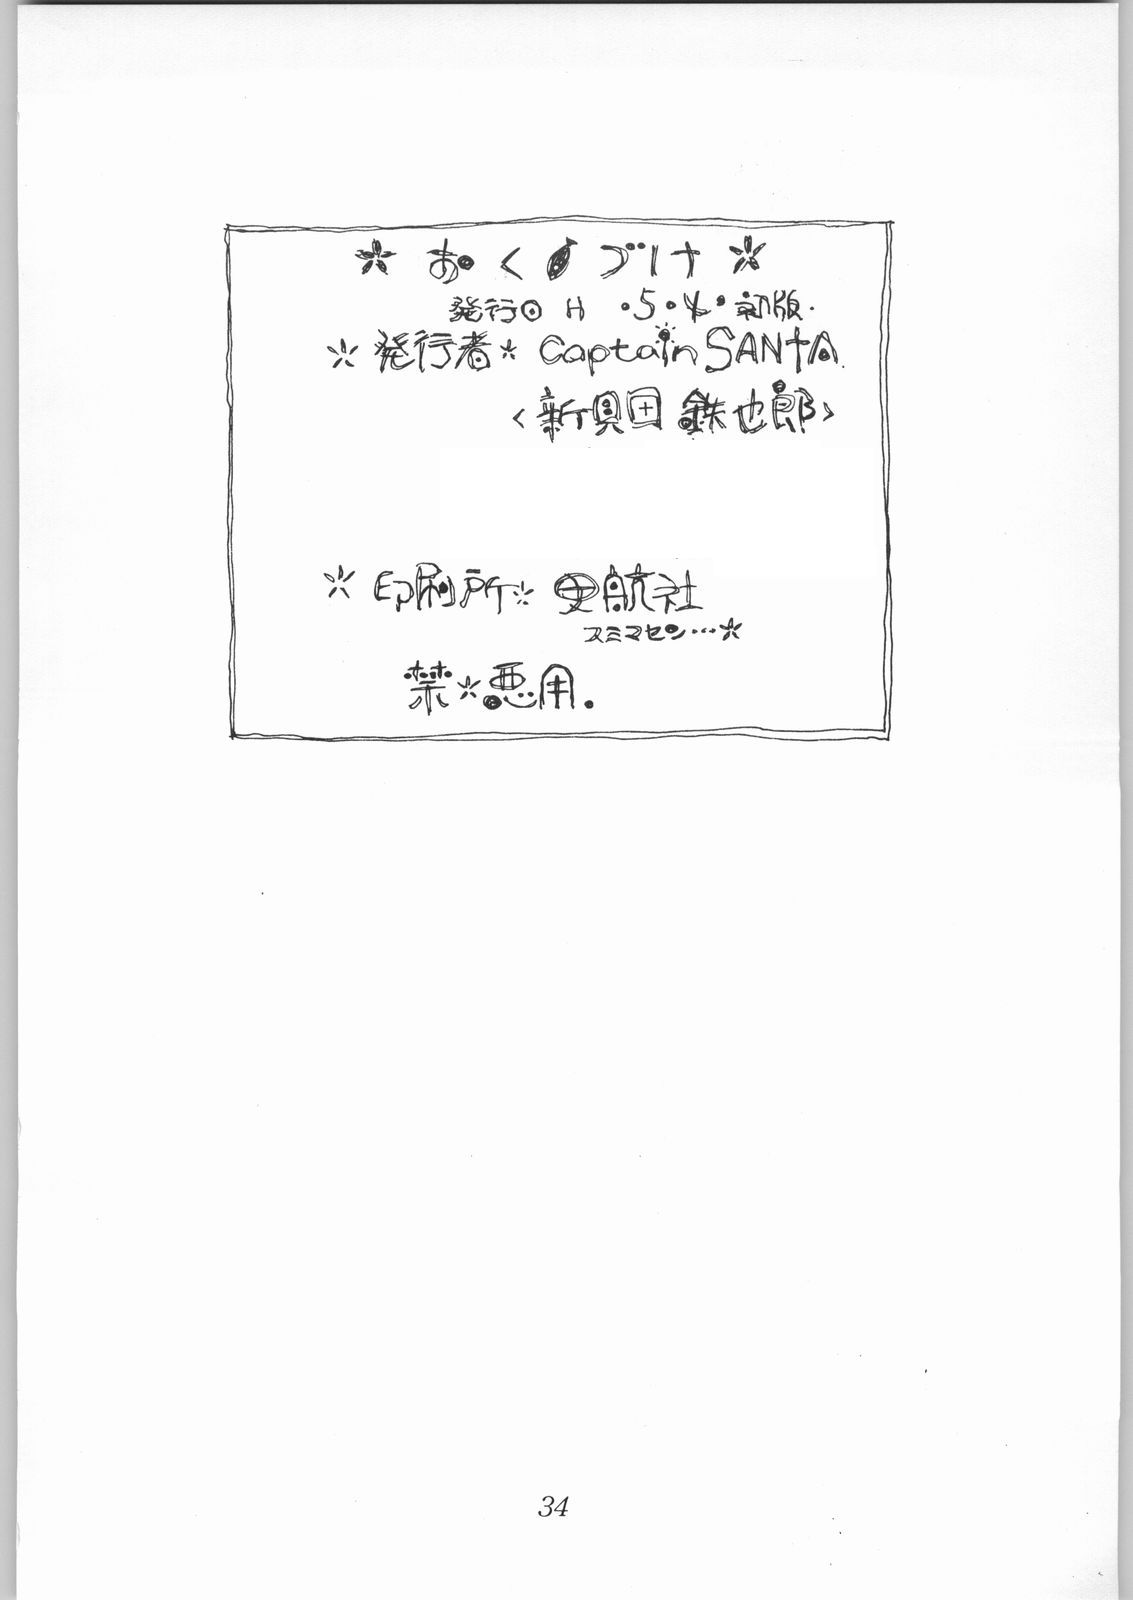 * おく♪づけ *
発行⊙ H ・5・4・初版・
* 発行者 * Captain SANTA
<新貝田 鉄也郎>
* 印刷所 * 曳航社
スミマセン…*
禁*悪用.
34